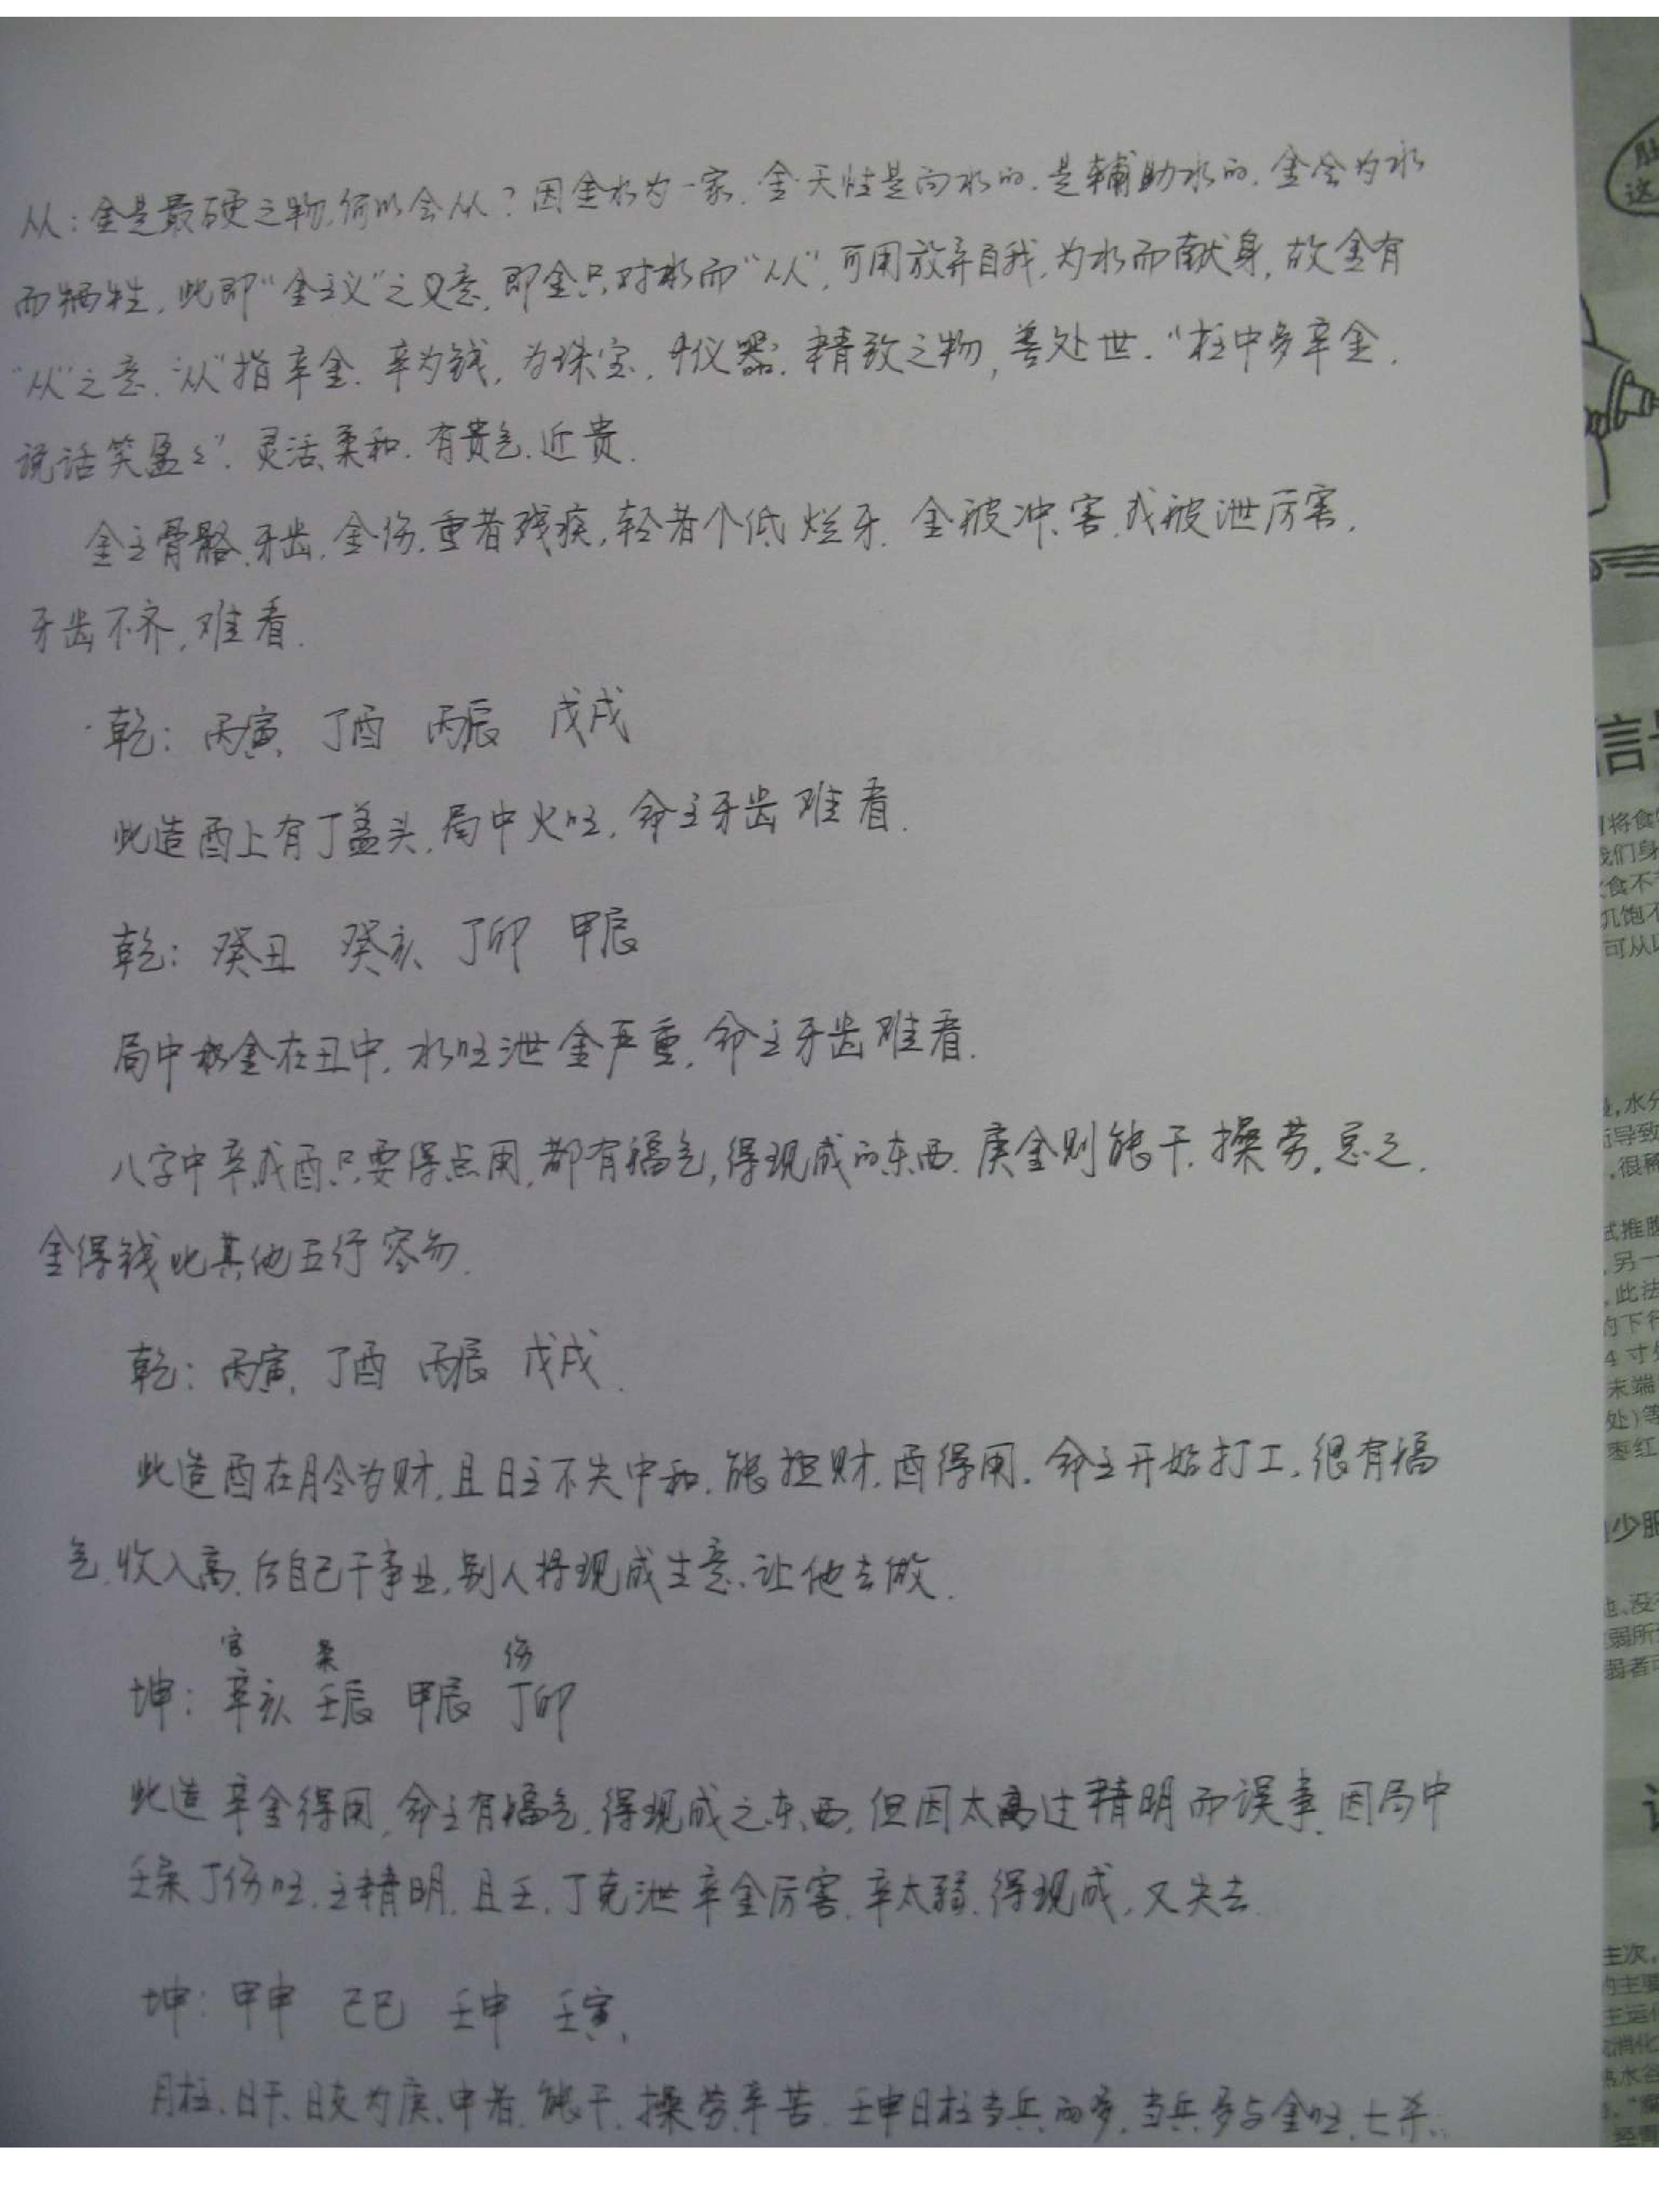 从：金是最硬之物,何以会从？因金水为一家.金天性是向水的.是辅助水的.金会为水
而牺牲,此即“金主义”之义意,即金只对水而“从”,可用放弃自我,为水而献身,故金有
“从”之意.“从”指辛金.辛为钱,为珠宝,仪器.精致之物,善处世.“柱中多辛金,
说话笑盈々”.灵活、柔和.有贵气.近贵.
金主骨骼、牙齿,金伤,重者残疾,轻者个低烂牙.金被冲、害,或被泄厉害,
牙齿不齐,难看.
乾：丙寅 丁酉 丙辰 戊戌
此造酉上有丁盖头,局中火旺,命主牙齿难看.
乾：癸丑 癸亥 丁卯 甲辰
局中金在丑中,水旺泄金严重,命主牙齿难看.
八字中辛或酉只要得点用,都有福气,得现成的东西.庚金则能干、操劳.总之,
金得钱比其他五行容易.
乾：丙寅 丁酉 丙辰 戊戌.
此造酉在月令为财,且日主不失中和,能担财,酉得用.命主开始打工,很有福
气,收入高,后自己干事业,别人将现成生意、让他去做.
官 枭 伤
坤：辛亥 壬辰 甲辰 丁卯
此造辛金得用,命主有福气,得现成之东西,但因太高过精明而误事.因局中
壬枭丁伤旺,主精明,且壬、丁克泄辛金厉害,辛太弱,得现成,又失去.
坤：甲申 己巳 壬申 壬寅
月柱、日干、日支为庚、申者,能干、操劳、辛苦.壬申日柱当兵的多,当兵多与金旺、七杀
信
将食
我们身
食不
饥饱不
可从
水分
导致
很
试推
另一
此法
的下行
4寸
末端
处)等
枣红
少服
没
弱所
弱者
主次,
的主要
主运化
消化
水谷